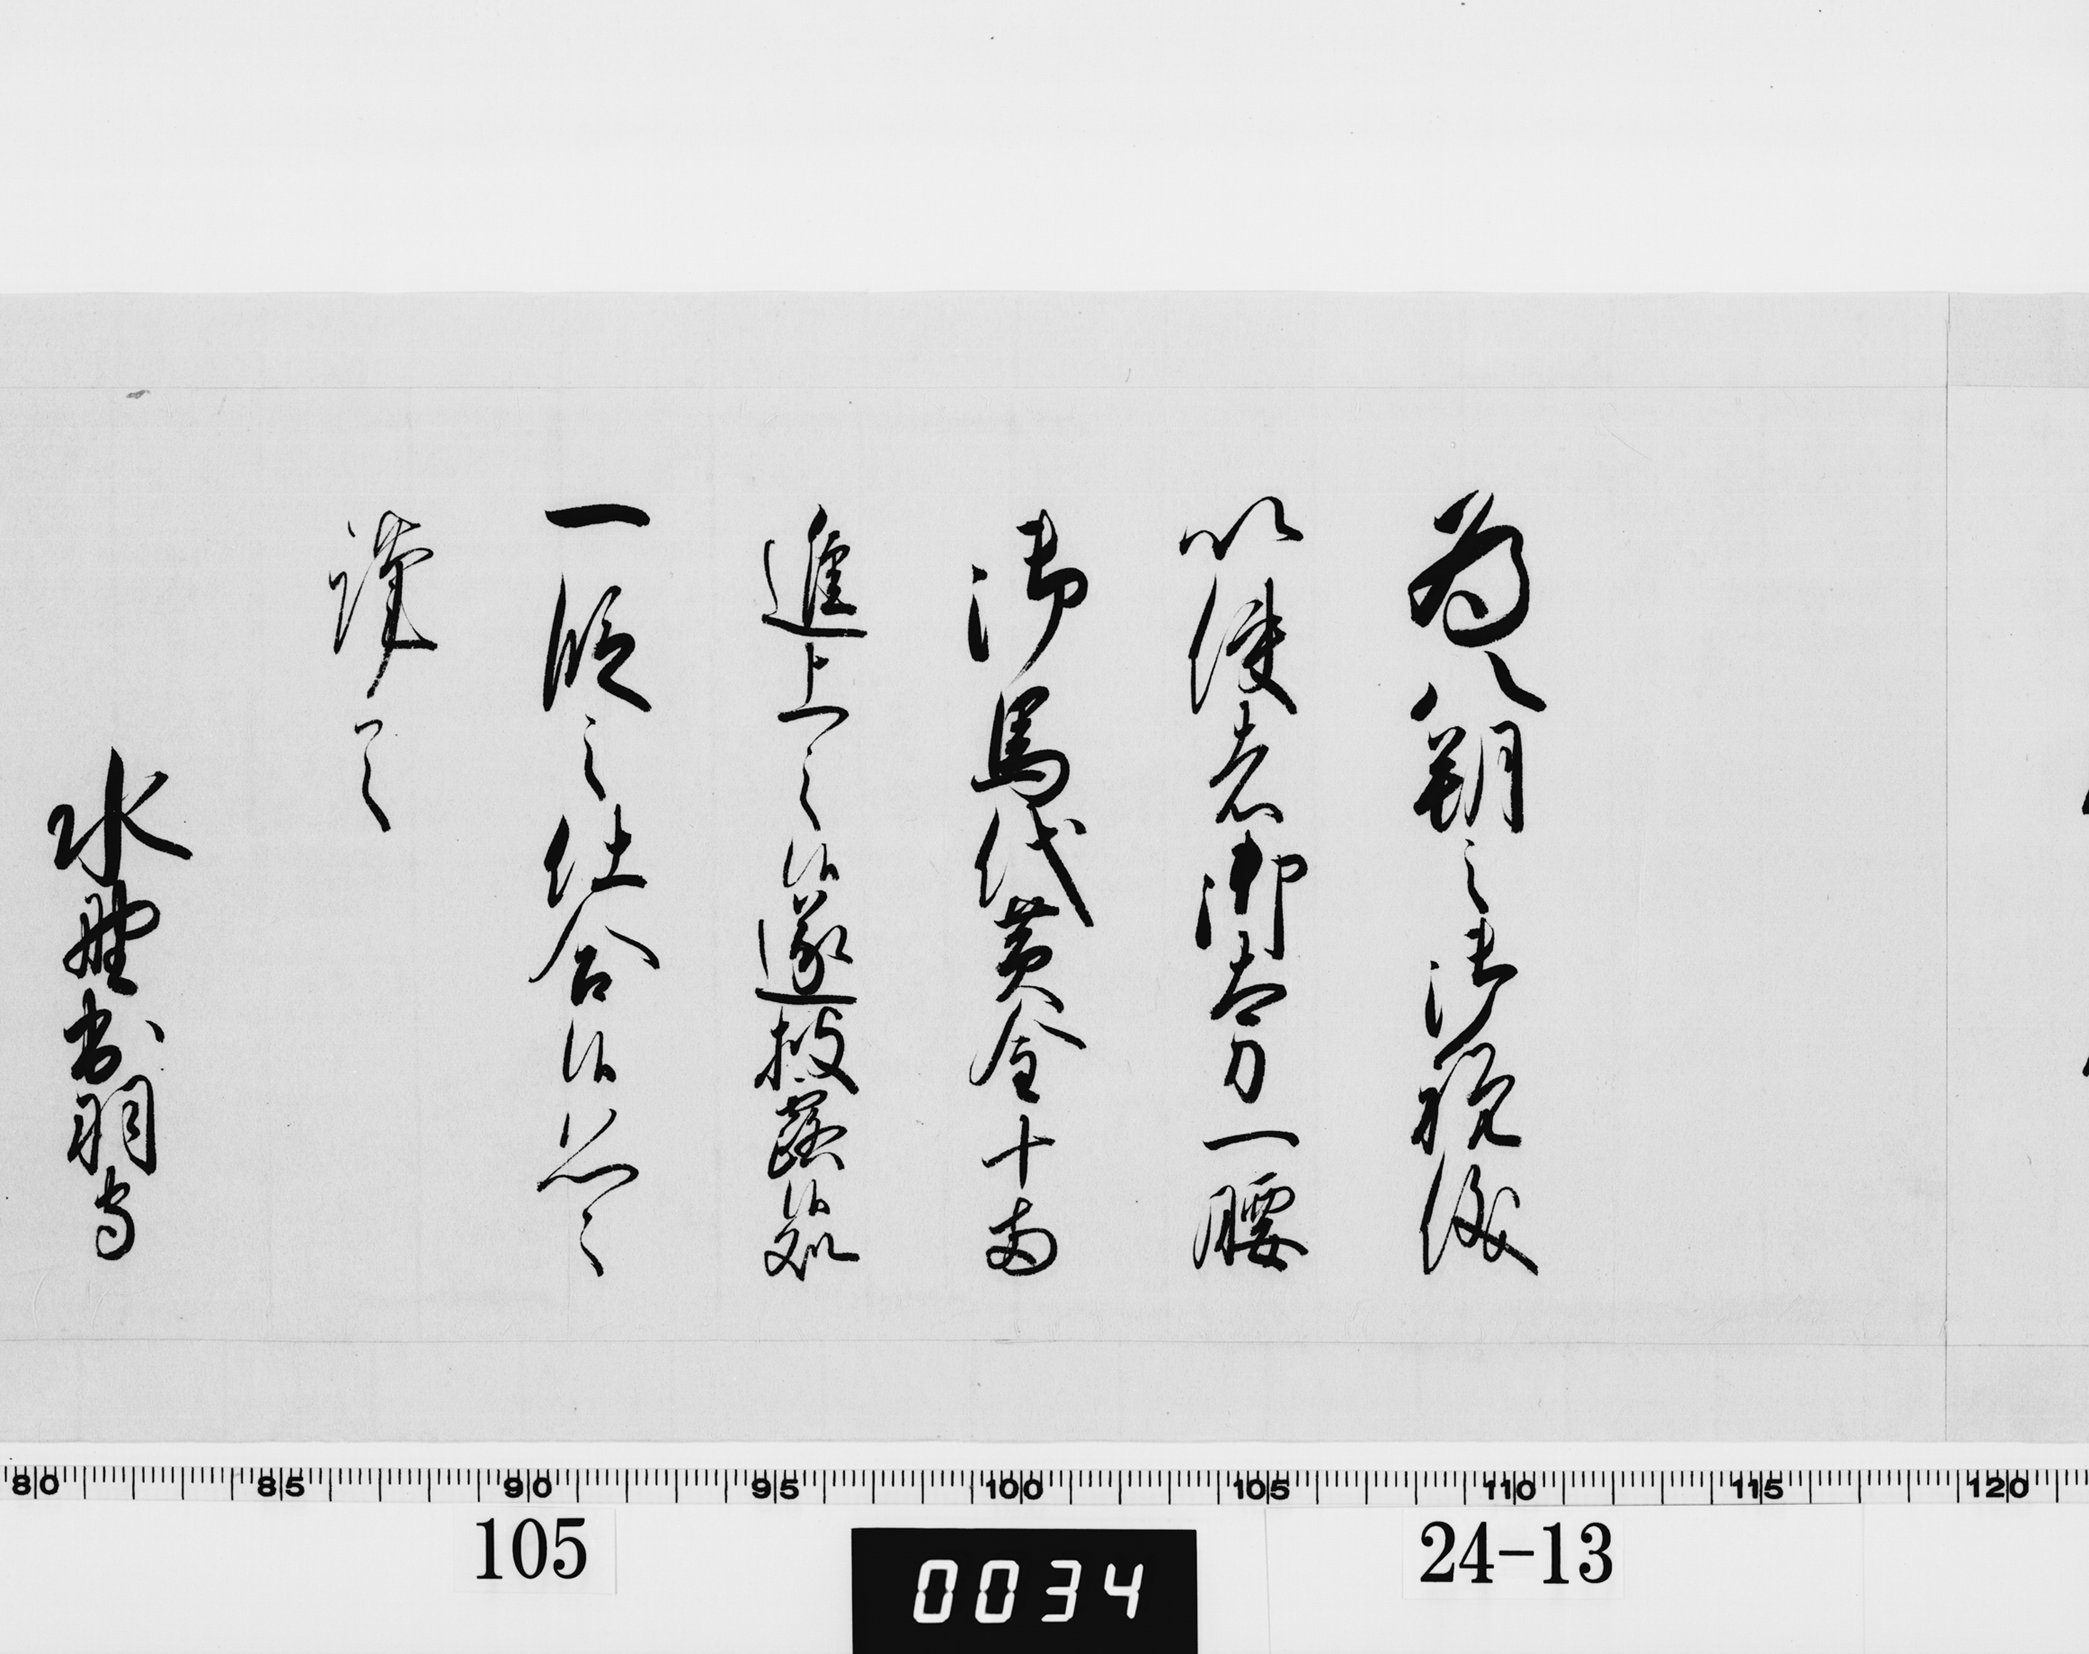 為八朔之御祝儀
以使者御太刀一腰
御馬代黄金十両
進上之候遂披露候処
一段之仕合候恐々
謹言
水野出羽守
80 85 90 95 100 105 110 115 120
105
0034
24-13